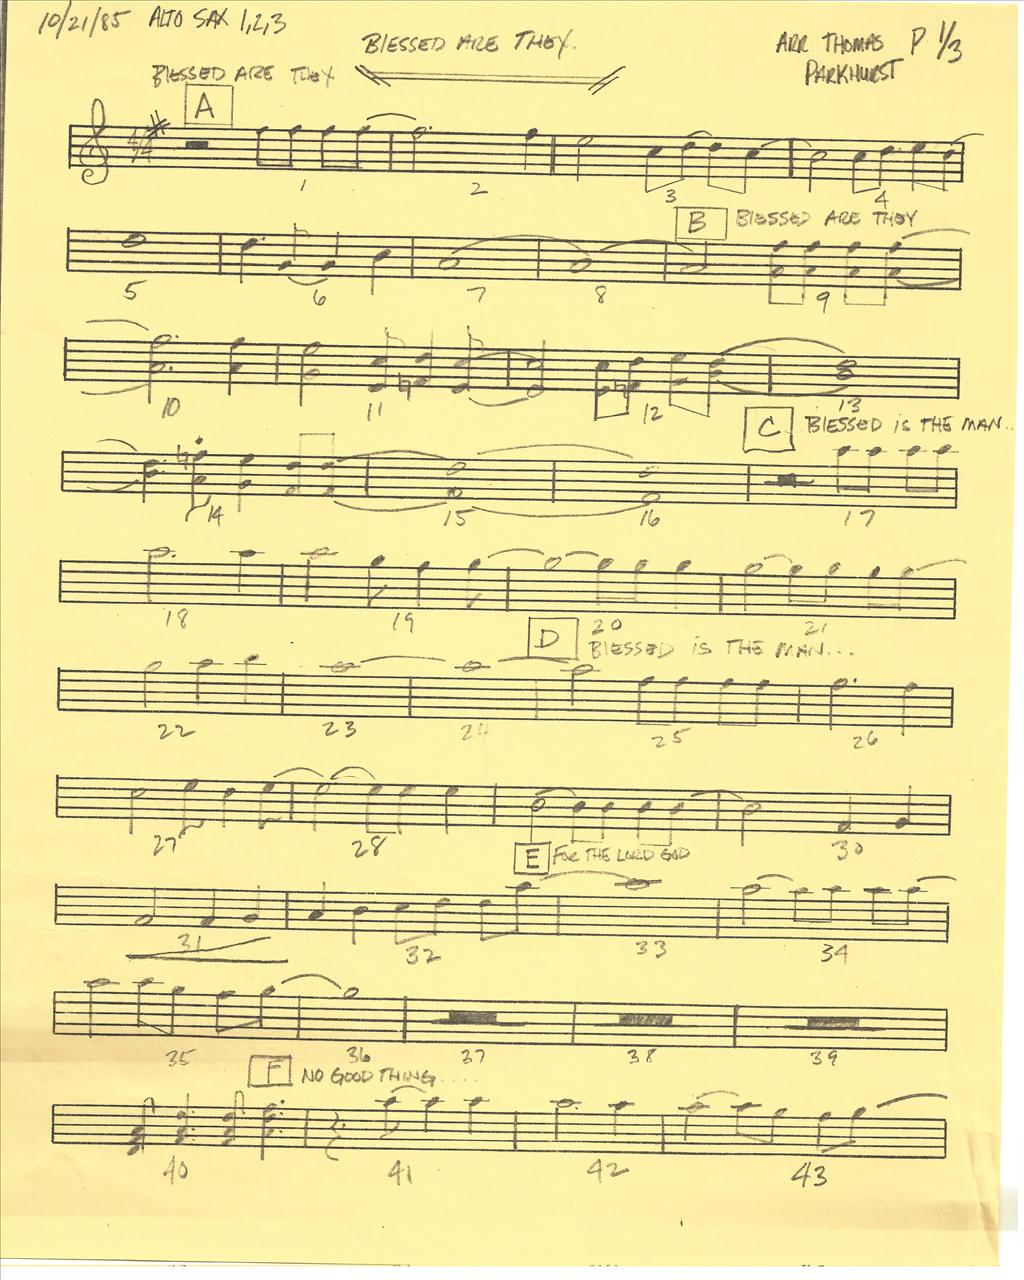 10/21/85 ALTO SAX 1,2,3
BLESSED ARE THEY.
ARR THOMAS P 1/3
PARKHURST
BLESSED ARE THEY
A
4/4
1 2 3 4
B BLESSED ARE THEY
5 6 7 8 9
10 11 12 13
C BLESSED IS THE MAN..
14 15 16 17
18 19 20 21
D BLESSED IS THE MAN...
22 23 24 25 26
27 28 30
E FOR THE LORD GOD
31 32 33 34
35 36 37 38 39
F NO GOOD THING.....
40 41 42 43